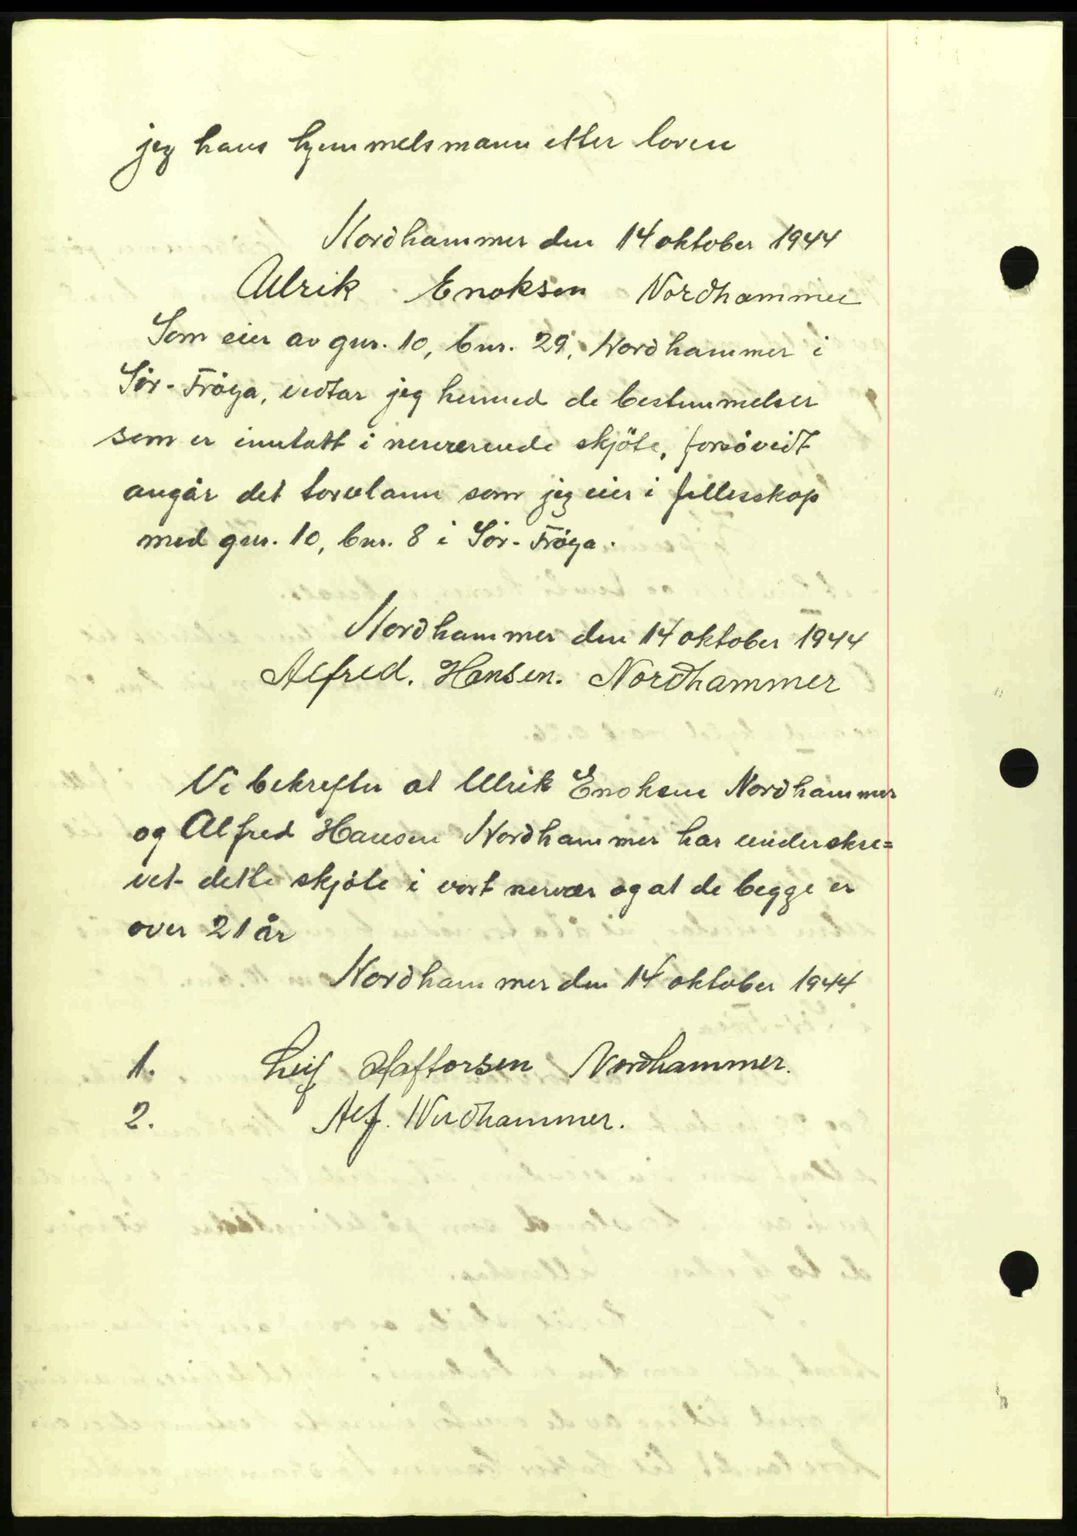 jeg hans hjemmelsmann etter loven
Nordhammer den 14 oktober 1944
Ulrik Enoksen Nordhammer
Som eier av gnr. 10, bnr. 29, Nordhammer i
Sör-Fröya, vedtar jeg hermed de bestemmelser
som er inntatt i nerværende skjöte, forsåvidt
angår det torvland som jeg eier i fellesskap
med gnr. 10, bnr. 8 i Sör-Fröya.
Nordhammer den 14 oktober 1944
Alfred. Hansen. Nordhammer
Vi bekrefter at Ulrik Enoksen Nordhammer
og Alfred Hansen Nordhammer har underskre=
vet dette skjöte i vort nervær og at de begge er
over 21 år
Nordhammer den 14 oktober 1944
1. Leif Haftorsen Nordhammer.
2. Alf. Nordhammer.